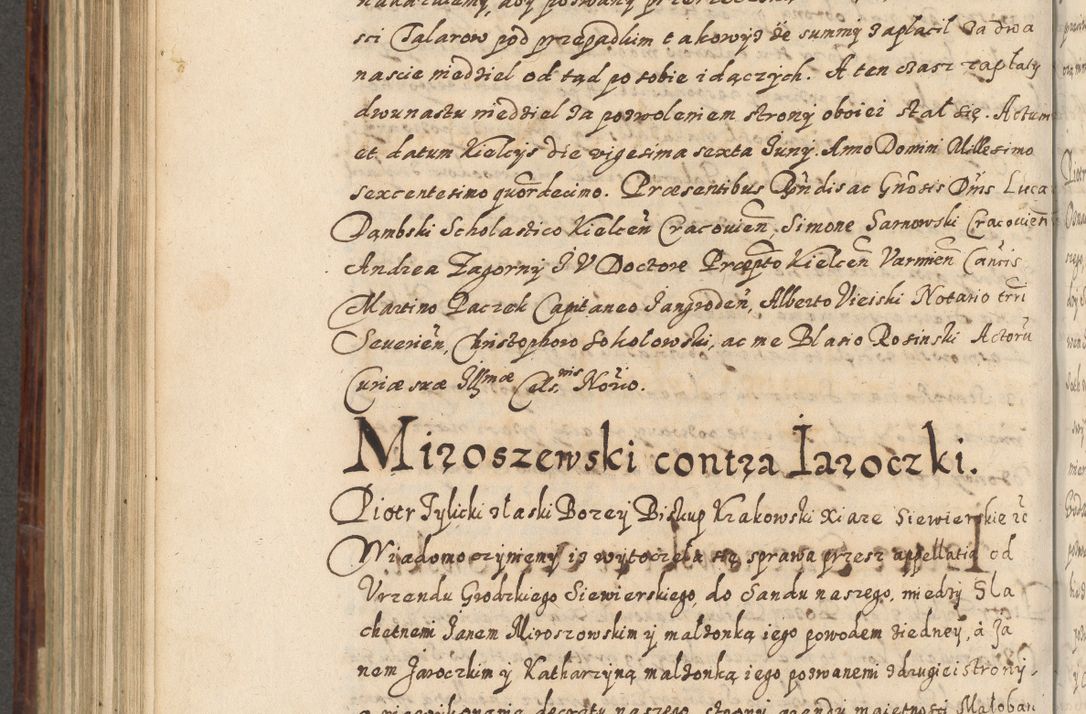 sci Talarow pod przepadkim takowyz że summy zapłacil za dwa
nascie niedziel od tąd po sobie idączych. A ten czasz zapłaty
dwunastu niedziel za pozwoleniem strony oboiei stał się. Actum
et datum Kielcys die vigesima sexta Juny. Anno Domini Millesimo
sexcentesimo quordecimo. Præsentibus Rndis ac Gnosis Dnis Luca
Dąmbski Scholastico Kielcen Cracouien, Simone Sarnowski Cracouien
Andrea Zagorny J V Doctore Præpto Kielcen Varmien Cancis
Martino Paczek Capitaneo Jangroden, Alberto Vieiski Notario trri
Severien, Christophoro Sokolowski, ac me Blasio Rosinski Actoru
Curiæ suæ Illmæ Cels.nis Norio.
Miroszewski contra Jaroczki.
Piotr Tylicki złaski Bozey Biskup Krakowski Xiaze Siewierskie rc
Wiadomo czynemy is wytoczela się sprawa przesz appellatią od
Vrzendu Grodzkiego Siewierskiego, do Sandu naszego, miedzy Sla
chetnemi Janem Miroszowskim y malzonką iego powodem ziedney, á Ja
nem Jaroczkim y Katharzyną malzonką iego pozwanemi zdrugiei strony,
decretu naszego, strony maietnosci Małoban